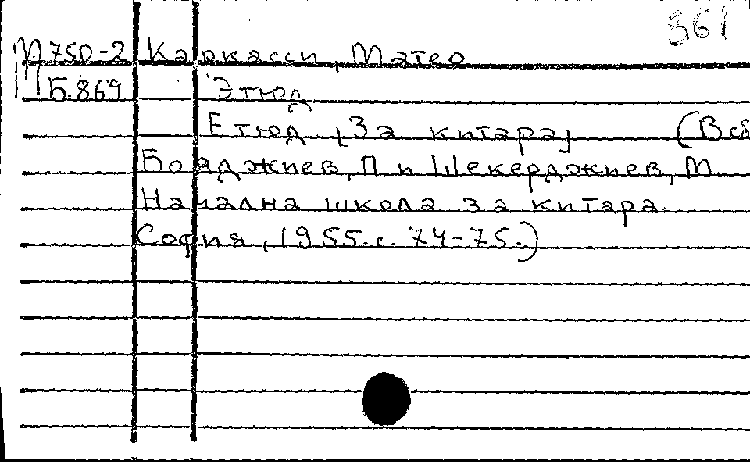 361
М750-2 Каркасси, Матео
П Б.869 Этюд
Етюд [За китара] (В сб
Бояджиев, П и Шекерджиев, М
Начална школа за китара.
София, 1955. с. 74-75.)